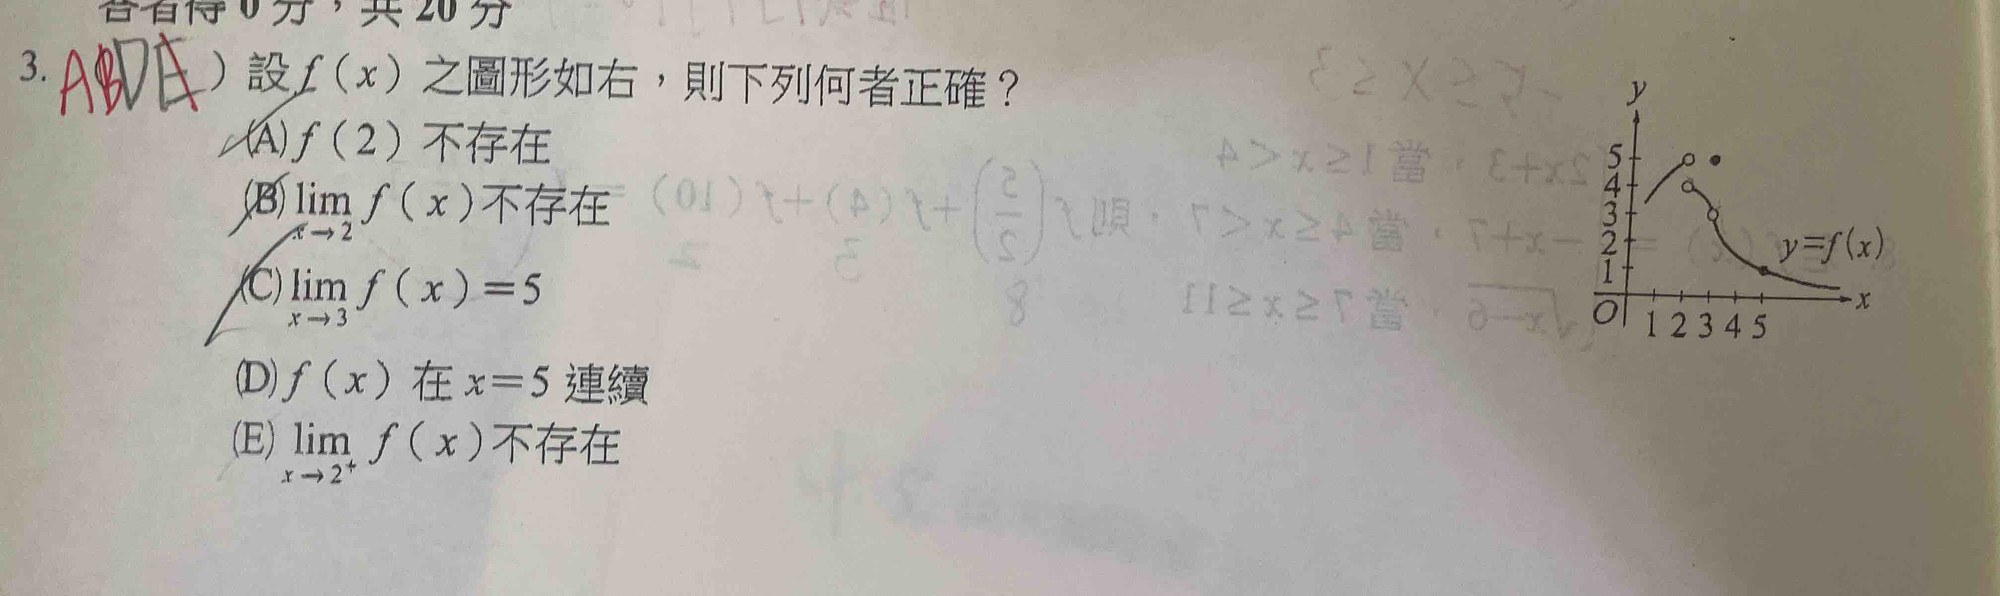 答者得0分，共20分
3. ABDE ）設 f（x）之圖形如右，則下列何者正確？
(A) f（2）不存在
(B) lim x→2 f（x）不存在
(C) lim x→3 f（x）＝5
(D) f（x）在 x＝5 連續
(E) lim x→2⁺ f（x）不存在
y
5
4
3
2
1
y=f(x)
O 1 2 3 4 5 x